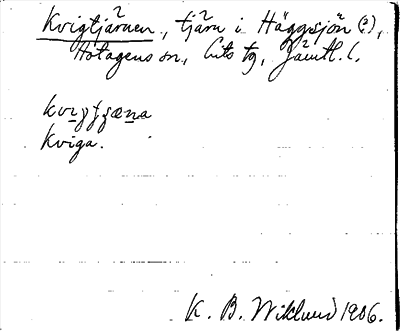 Kvigtjärnen, tjärn i Häggsjön (?),
Hotagens sn, Lits tg, Jämtl. l.
kvɪgʃæna
Kviga.
K. B. Wiklund 1906.